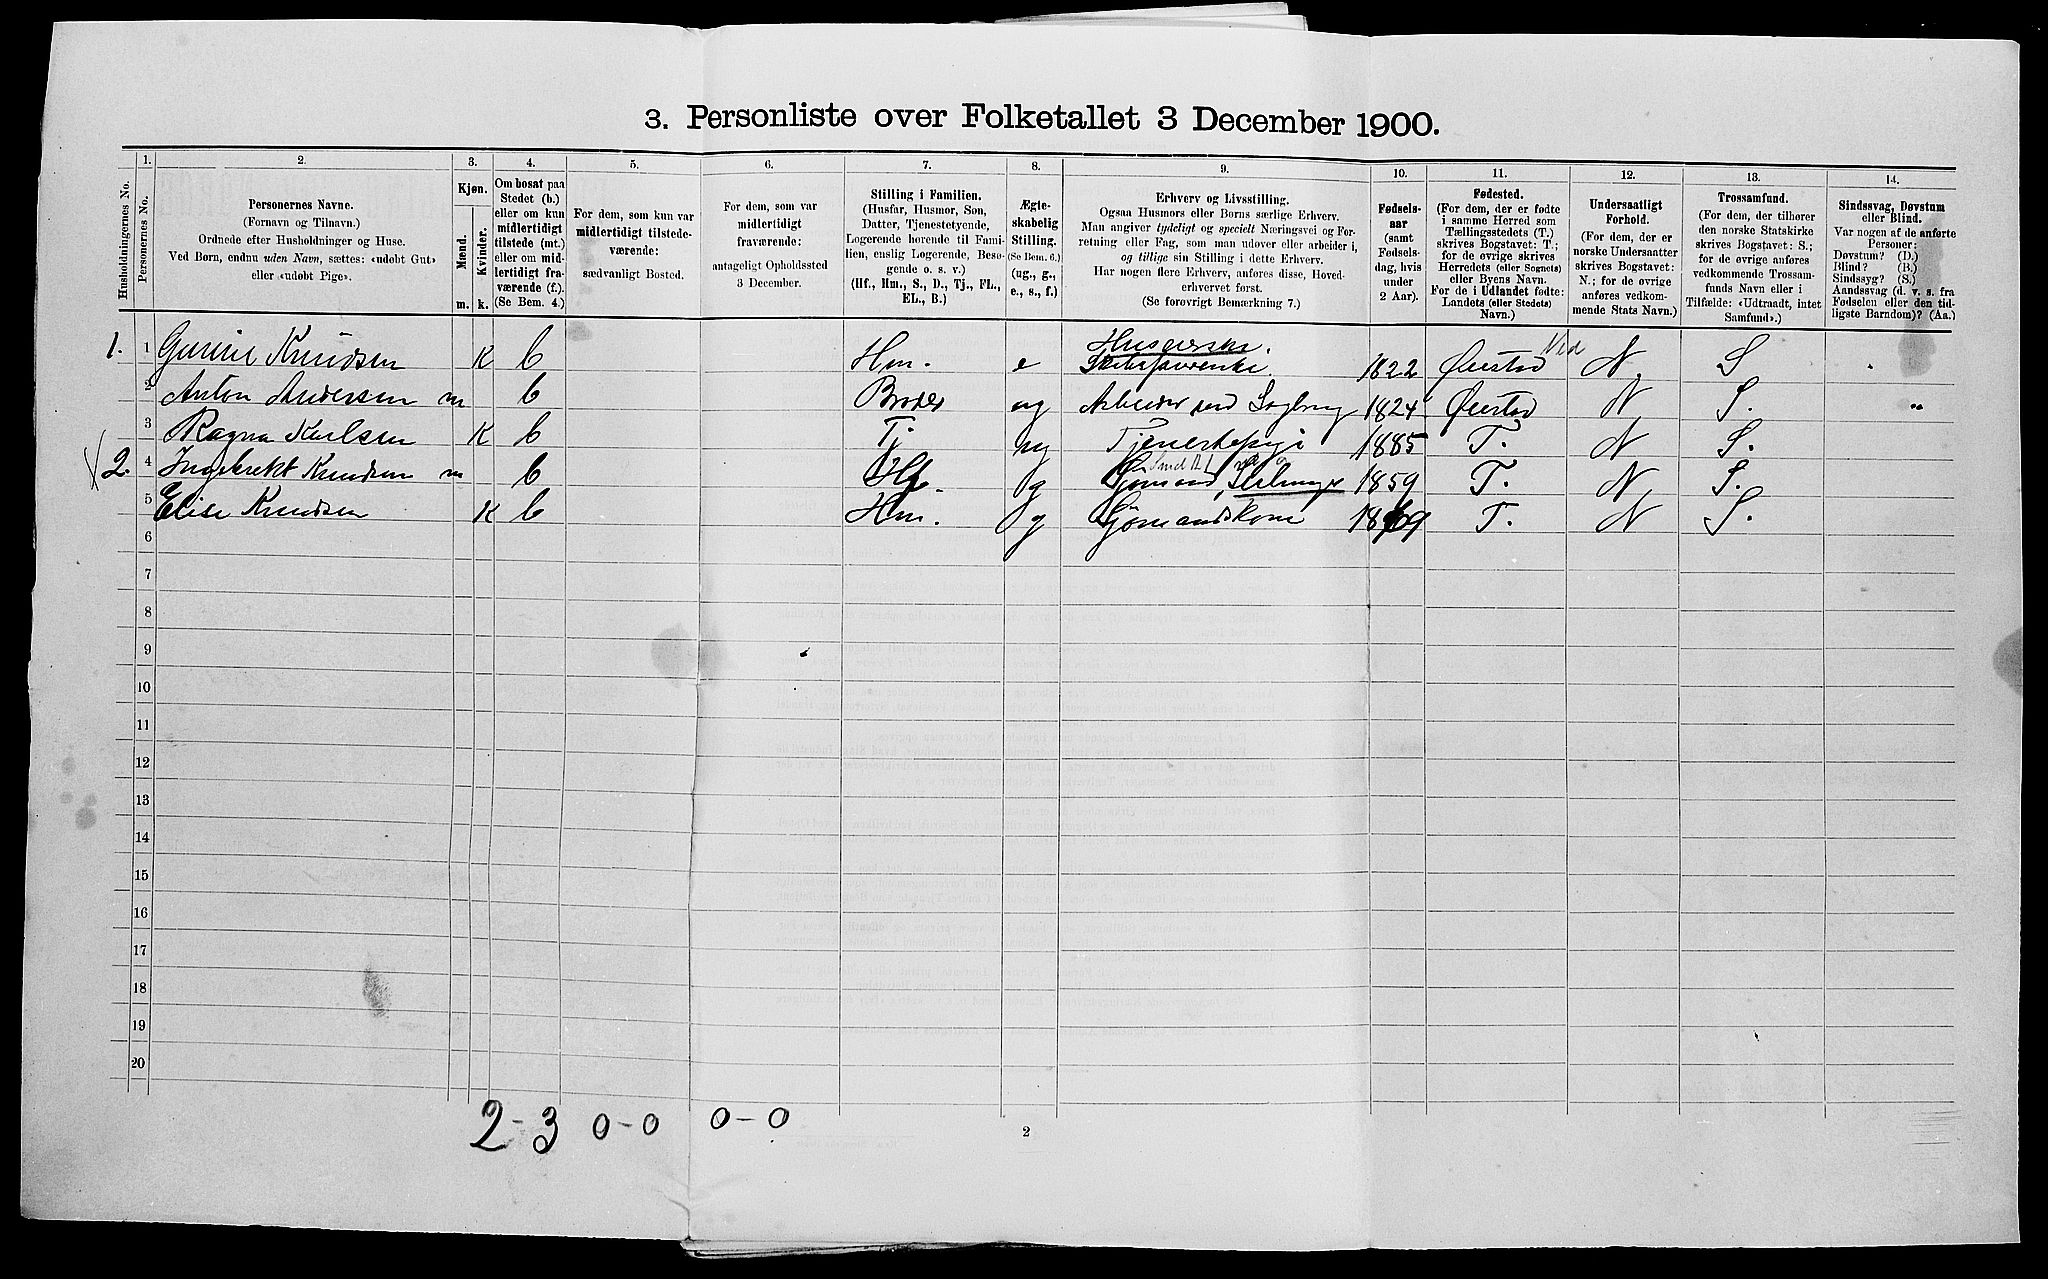 3. Personliste over Folketallet 3 December 1900.
Husholdningernes No.
1.
Personernes No.
2.
Personernes Navne.
(Fornavn og Tilnavn.)
Ordnede efter Husholdninger og Huse.
Ved Børn, endnu uden Navn, sættes: «udøbt Gut»
eller «udøbt Pige».
3.
Kjøn.
Mænd.
Kvinder.
m.
k.
4.
Om bosat paa
Stedet (b.)
eller om kun
midlertidigt
tilstede (mt.)
eller om mid-
lertidigt fra-
værende (f.).
(Se Bem. 4.)
5.
For dem, som kun var
midlertidigt tilstede-
værende:
sædvanligt Bosted.
6.
For dem, som var
midlertidigt
fraværende:
antageligt Opholdssted
3 December.
7.
Stilling i Familien.
(Husfar, Husmor, Søn,
Datter, Tjenestetyende,
Logerende hørende til Fami-
lien, enslig Logerende, Besø-
gende o. s. v.)
(Hf., Hm., S., D., Tj., FL.,
EL., B.)
8.
Ægte-
skabelig
Stilling.
(Se Bem. 6.)
(ug., g.,
e., s., f.)
9.
Erhverv og Livsstilling.
Ogsaa Husmors eller Børns særlige Erhverv.
Man angiver tydeligt og specielt Næringsvei og For-
retning eller Fag, som man udøver eller arbeider i,
og tillige sin Stilling i dette Erhverv.
Har nogen flere Erhverv, anføres disse, Hoved-
erhvervet først.
(Se forøvrigt Bemærkning 7.)
10.
Fødsels-
aar
(samt
Fødsels-
dag, hvis
under
2 Aar).
11.
Fødested.
(For dem, der er fødte
i samme Herred som
Tællingsstedets (T.)
skrives Bogstavet: T.;
for de øvrige skrives
Herredets (eller Sognets)
eller Byens Navn.
For de i Udlandet fødte:
Landets (eller Stedets)
Navn.)
12.
Undersaatligt
Forhold.
(For dem, der er
norske Undersaatter
skrives Bogstavet:
N.; for de øvrige
anføres vedkom-
mende Stats Navn.)
13.
Trossamfund.
(For dem, der tilhører
den norske Statskirke
skrives Bogstavet: S.;
for de øvrige anføres
vedkommende Trossam-
funds Navn eller i
Tilfælde: «Udtraadt, intet
Samfund».)
14.
Sindssvag, Døvstum
eller Blind.
Var nogen af de anførte
Personer:
Døvstum? (D.)
Blind? (B.)
Sindssyg? (S.)
Aandssvag (d. v. s. fra
Fødselen eller den tid-
ligste Barndom)? (Aa.)
1. 1 Gurine Knudsen K b Hm. e 1822 Øiestad Ned N. S.
2 Anton Andersen m b Broder ug Arbeider ved Sagbrug 1824 Øiestad N. S. "
3 Ragna Karlsen K b Tj ug Tjenestepige 1885 T. N S.
2. 4 Ingebrekt Knudsen m b Hf. g 1859 T. N. S.
5 Elise Knudsen K b Hm. g Sjømandskone 1869 T. N S.
6
7
8
9
10
11
12
13
14
15
16
17
18
19
20
2-3 0-0 0-0
2